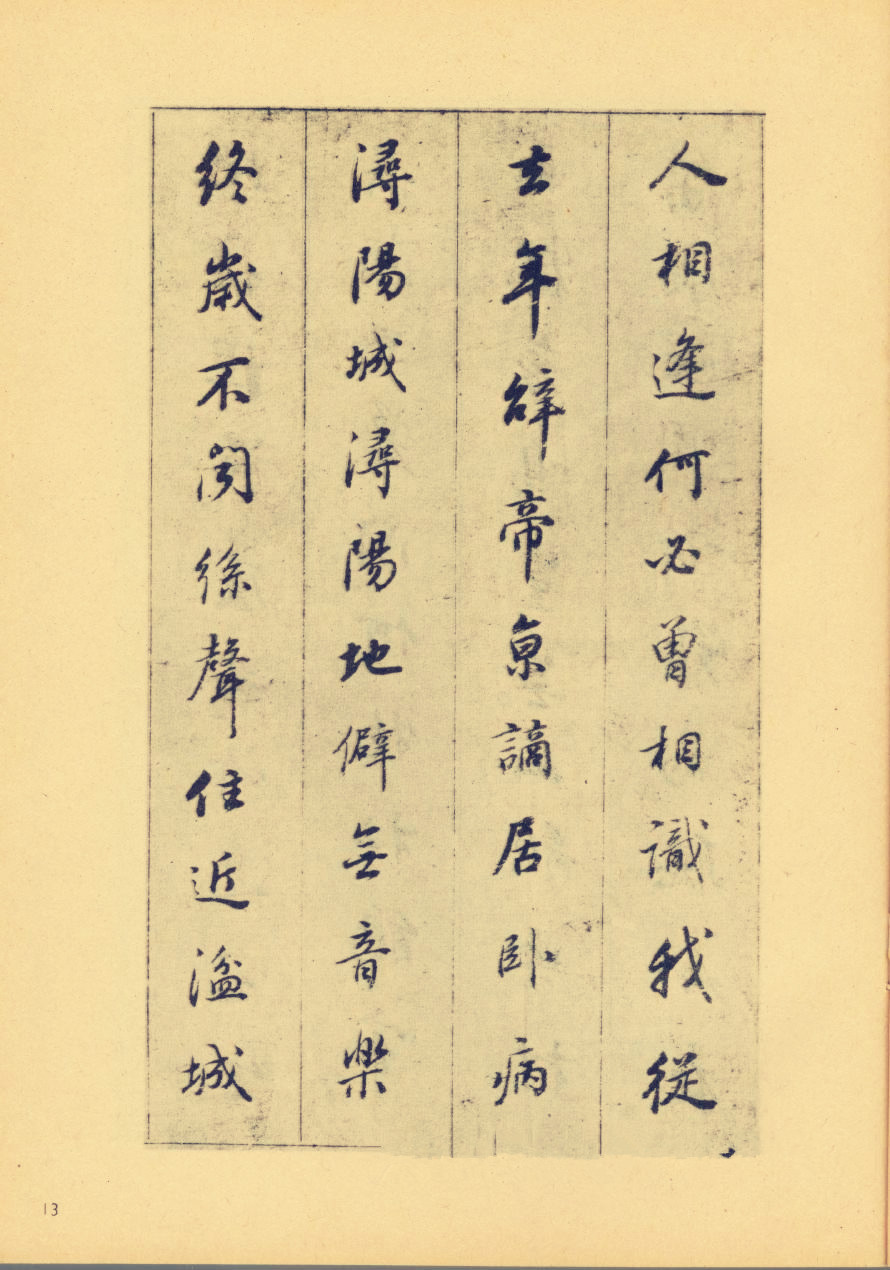 人相逢何必曾相識我從
去年辭帝京謫居卧病
潯陽城潯陽地僻無音樂
終歲不聞絲聲住近湓城
13